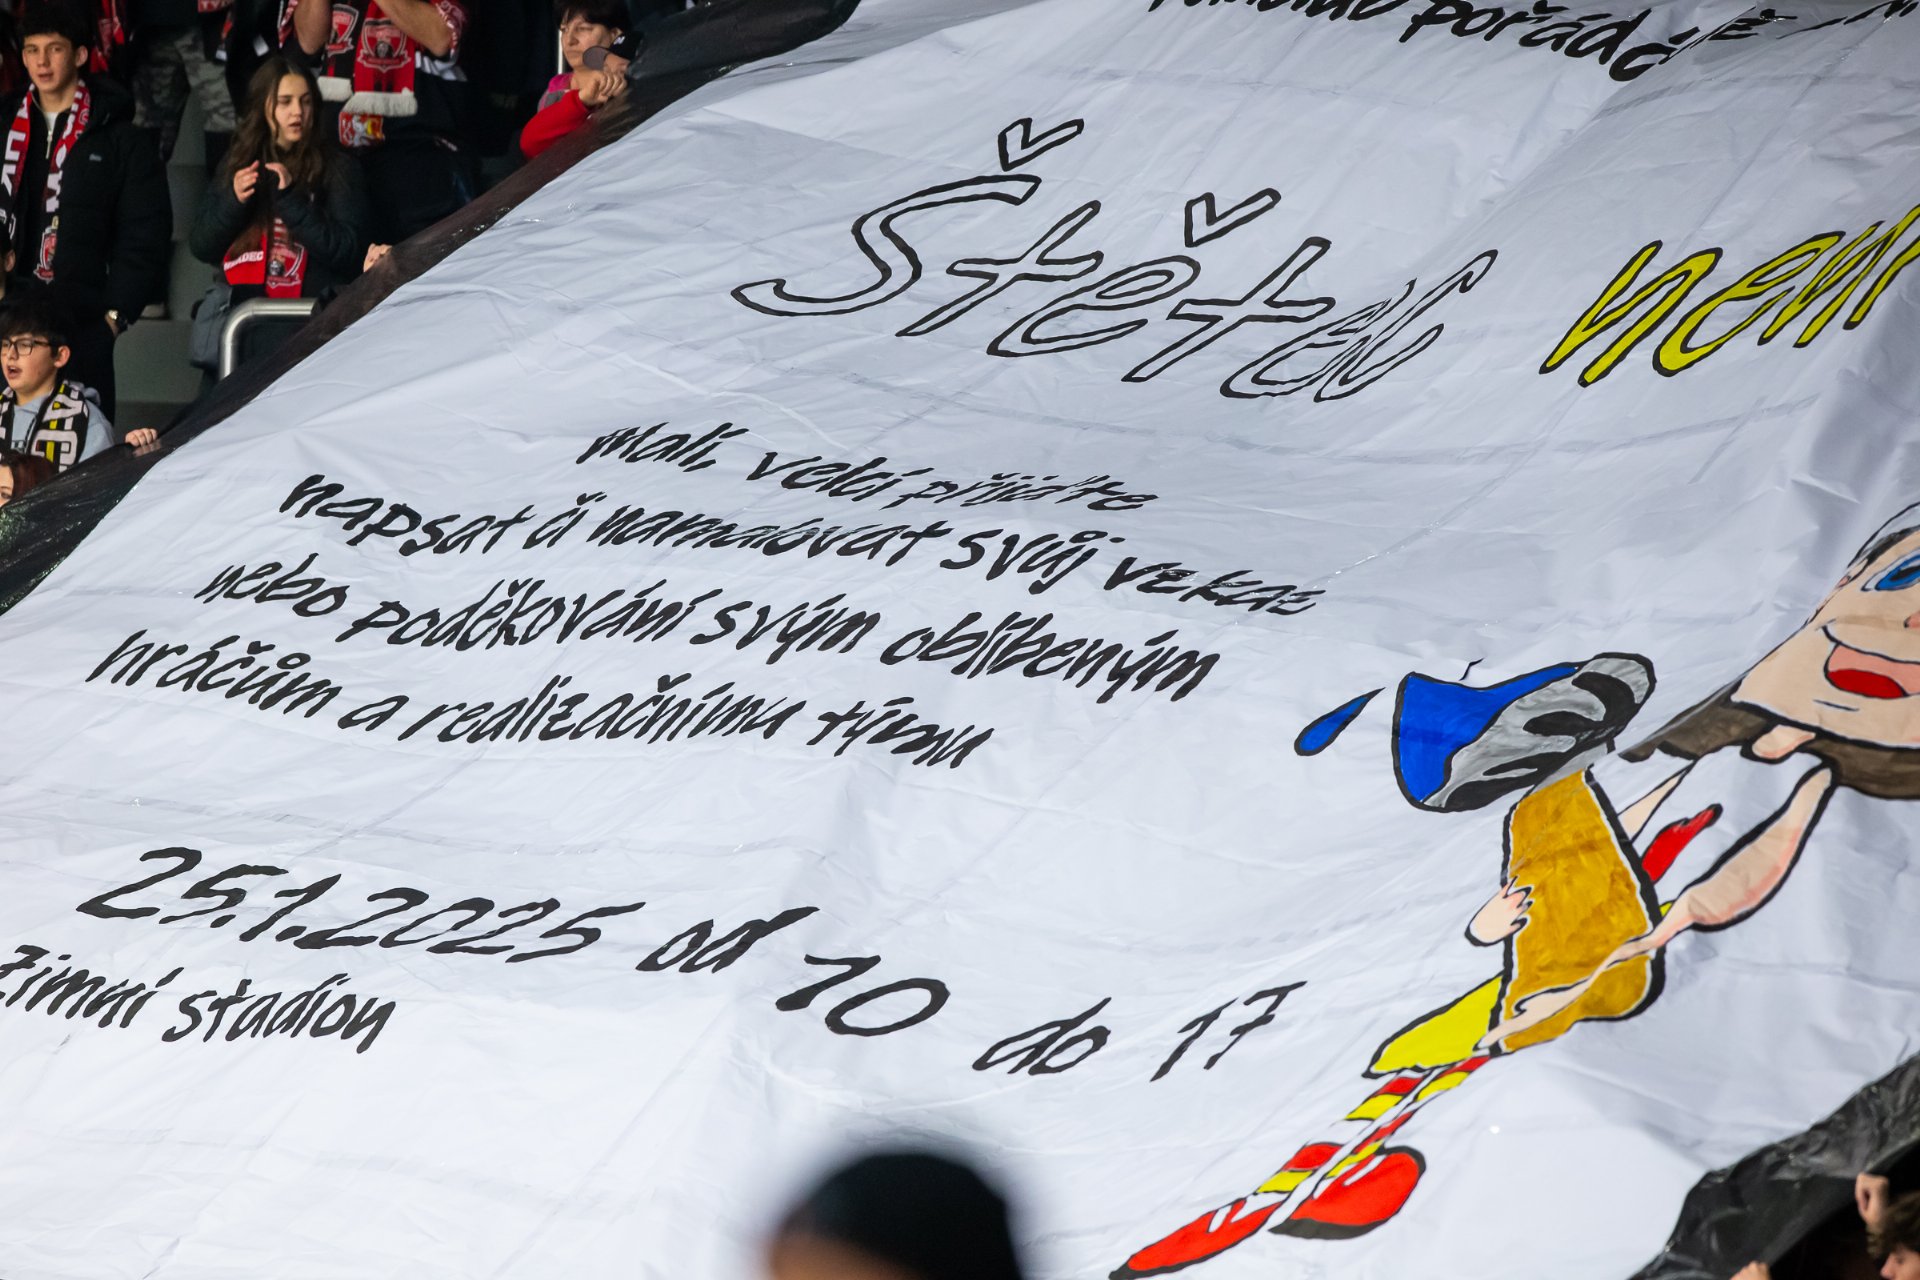 pořádá
Štětec není
Malí, velcí přijďte
napsat či namalovat svůj vzkaz
nebo poděkování svým oblíbeným
hráčům a realizačnímu týmu
25.1.2025 od 10 do 17
Zimní stadion